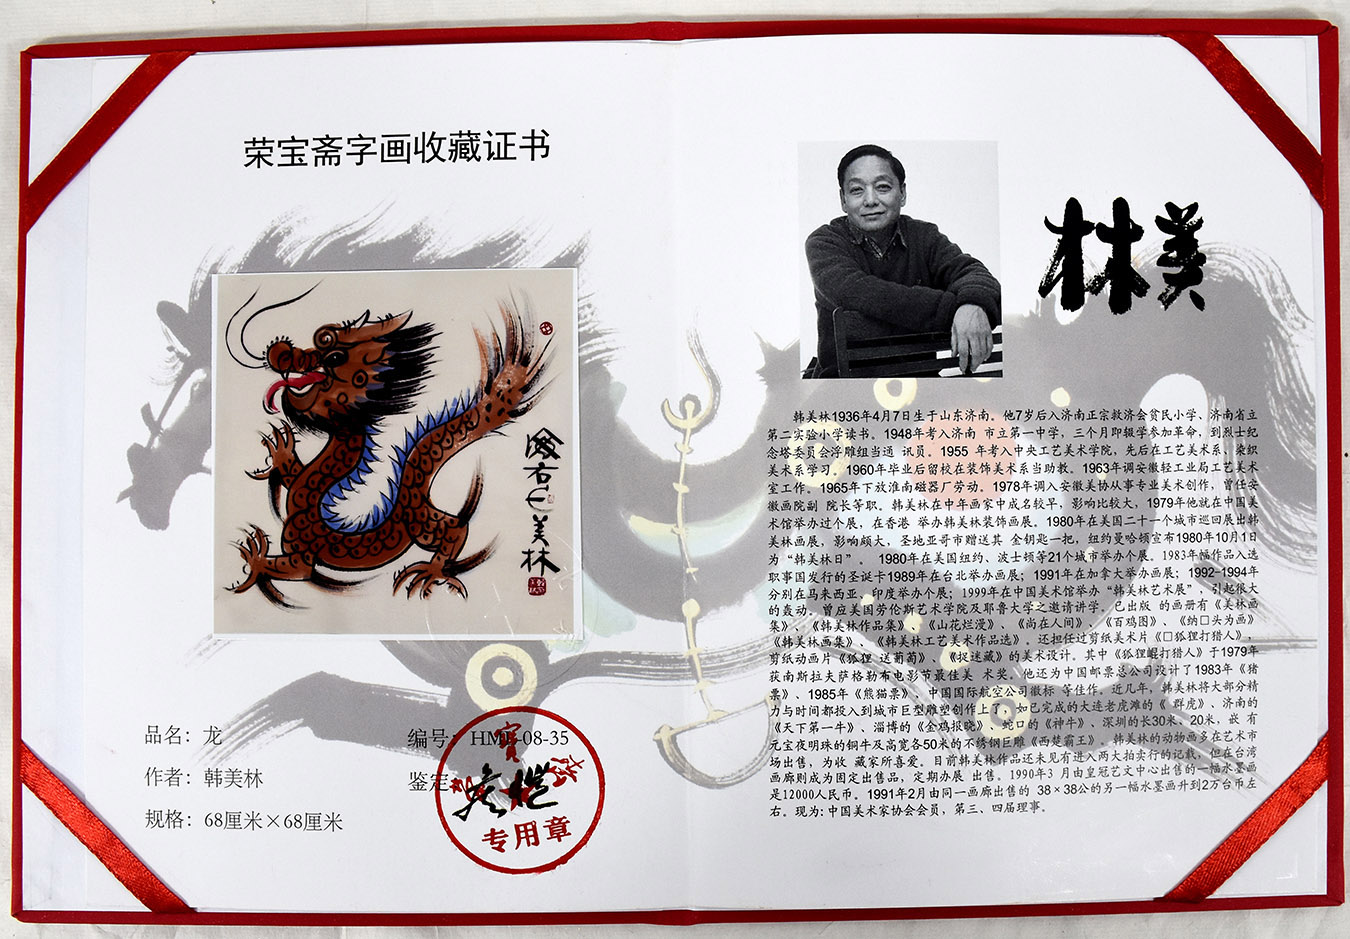 荣宝斋字画收藏证书
美林
品名：龙
编号：HML-08-35
作者：韩美林
鉴定
规格：68厘米×68厘米
专用章
美林
韩美林1936年4月7日生于山东济南。他7岁后入济南正宗救济会贫民小学、济南省立
第二实验小学读书。1948年考入济南 市立第一中学，三个月即辍学参加革命，到烈士纪
念塔委员会浮雕组当通 讯员。1955 年考入中央工艺美术学院，先后在工艺美术系，染织
美术系学习。1960年毕业后留校在装饰美术系当助教。1963年调安徽轻工业局工艺美术
室工作。1965年下放淮南磁器厂劳动。1978年调入安徽美协从事专业美术创作，曾任安
徽画院副 院长等职。韩美林在中年画家中成名较早，影响比较大，1979年他就在中国美
术馆举办过个展，在香港 举办韩美林装饰画展。1980年在美国二十一个城市巡回展出韩
美林画展，影响颇大，圣地亚哥市赠送其 金钥匙一把，纽约曼哈顿宣布1980年10月1日
为“韩美林日”。 1980年在美国纽约、波士顿等21个城市举办个展。1983年幅作品入选
职事国发行的圣诞卡1989年在台北举办画展；1991年在加拿大举办画展；1992-1994年
分别在马来西亚、印度举办个展；1999年在中国美术馆举办“韩美林艺术展”，引起很大
的轰动。曾应美国劳伦斯艺术学院及耶鲁大学之邀请讲学。已出版 的画册有《美林画
集》、《韩美林作品集》、《山花烂漫》、《尚在人间》、《百鸡图》、《纳□头为画》
《韩美林画集》、《韩美林工艺美术作品选》。还担任过剪纸美术片《□狐狸打猎人》，
剪纸动画片《狐狸 送葡萄》、《捉迷藏》的美术设计。其中《狐狸崐打猎人》于1979年
获南斯拉夫萨格勒布电影节最佳美 术奖。他还为中国邮票总公司设计了1983年《猪
票》、1985年《熊猫票》，中国国际航空公司徽标 等佳作。近几年，韩美林将大部分精
力与时间都投入到城市巨型雕塑创作上了，如已完成的大连老虎滩的《 群虎》、济南的
《天下第一牛》、淄博的《金鸡报晓》、蛇口的《神牛》、深圳的长30米、20米，嵌 有
元宝夜明珠的铜牛及高宽各50米的不锈钢巨雕《西楚霸王》。韩美林的动物画多在艺术市
场出售，为收 藏家所喜爱。目前韩美林作品还未见有进入两大拍卖行的记载，但在台湾
画廊则成为固定出售品，定期办展 出售。1990年3 月由皇冠艺文中心出售的一幅水墨画
是12000人民币。1991年2月由同一画廊出售的 38×38公的另一幅水墨画升到2万台币左
右。现为:中国美术家协会会员，第三、四届理事。